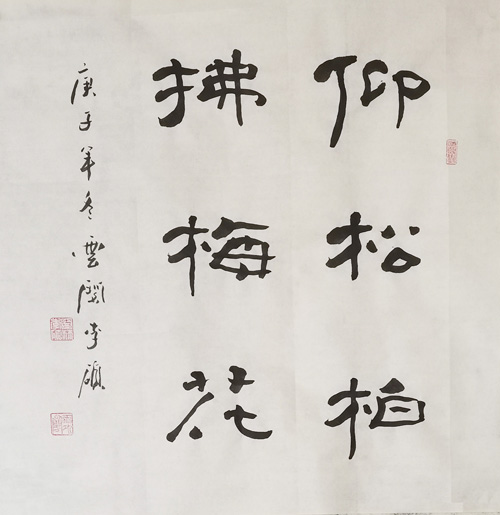 仰松柏
拂梅花
庚子年冬雲閣李碩